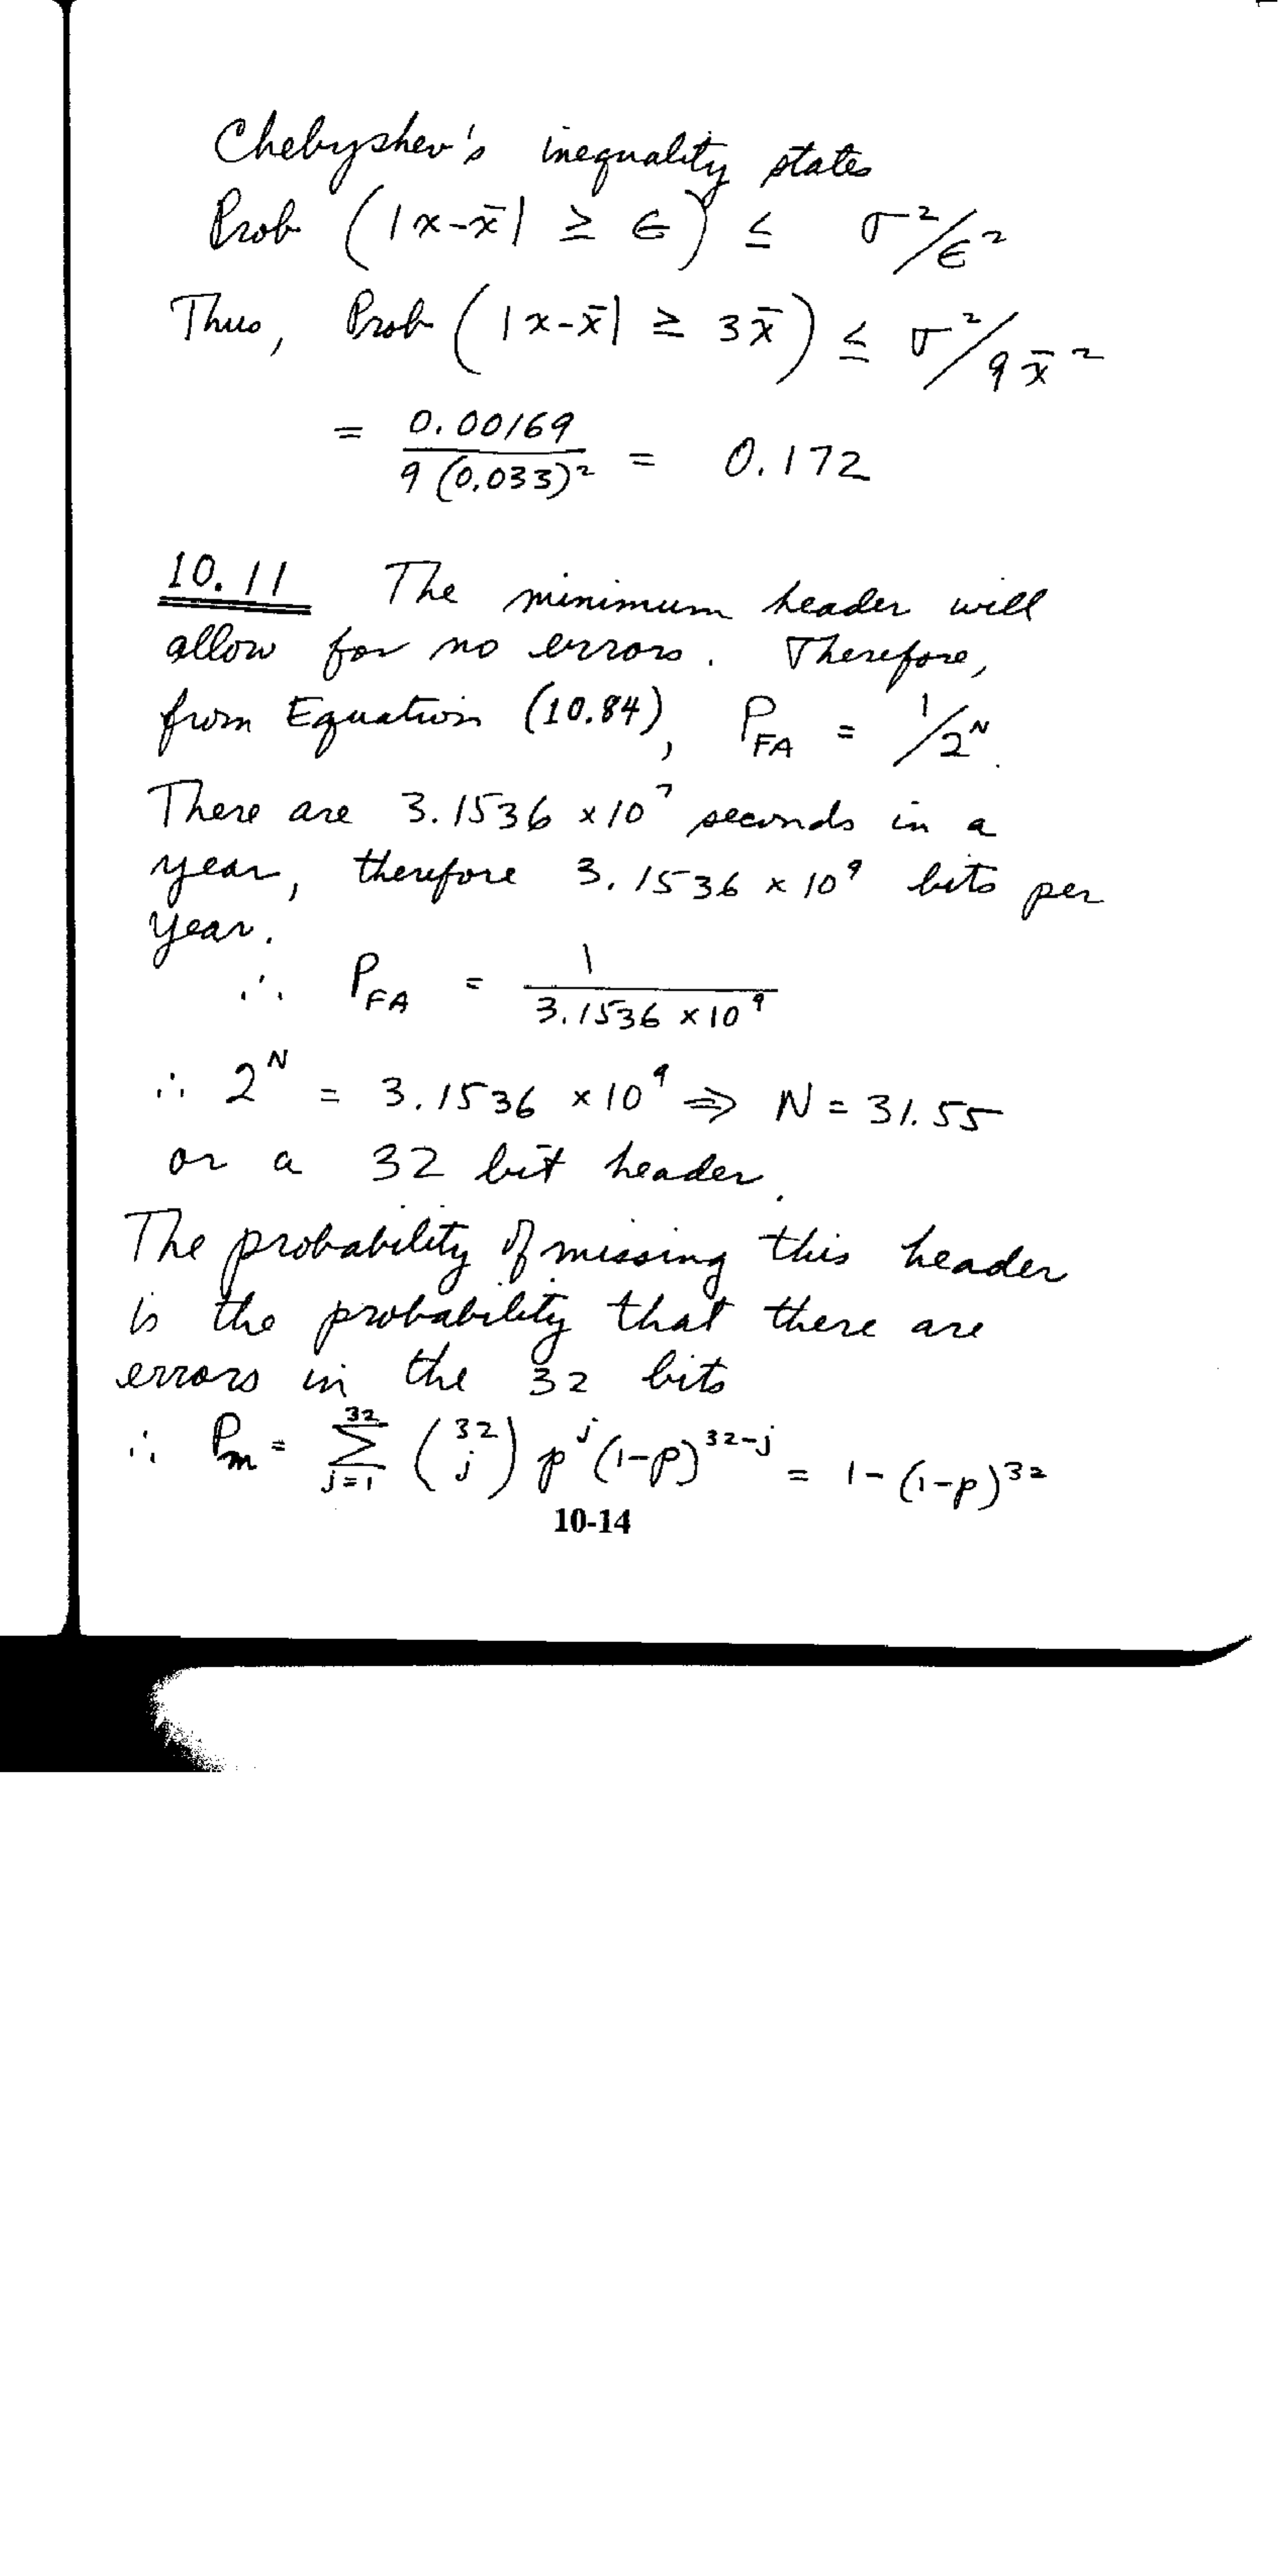 Chebyshev's inequality states
Prob (|x-x̄| ≥ ϵ) ≤ σ²/ϵ²
Thus, Prob (|x-x̄| ≥ 3x̄) ≤ σ²/9x̄²
= 0.00169 / 9(0.033)² = 0.172
10.11 The minimum header will
allow for no errors. Therefore,
from Equation (10.84), P_FA = 1/2^N.
There are 3.1536 x 10⁷ seconds in a
year, therefore 3.1536 x 10⁹ bits per
year.
∴ P_FA = 1 / 3.1536 x 10⁹
∴ 2^N = 3.1536 x 10⁹ ⇒ N = 31.55
or a 32 bit header.
The probability of missing this header
is the probability that there are
errors in the 32 bits
∴ P_m = Σ_{j=1}^{32} (32 j) p^j (1-p)^{32-j} = 1-(1-p)^{32}
10-14